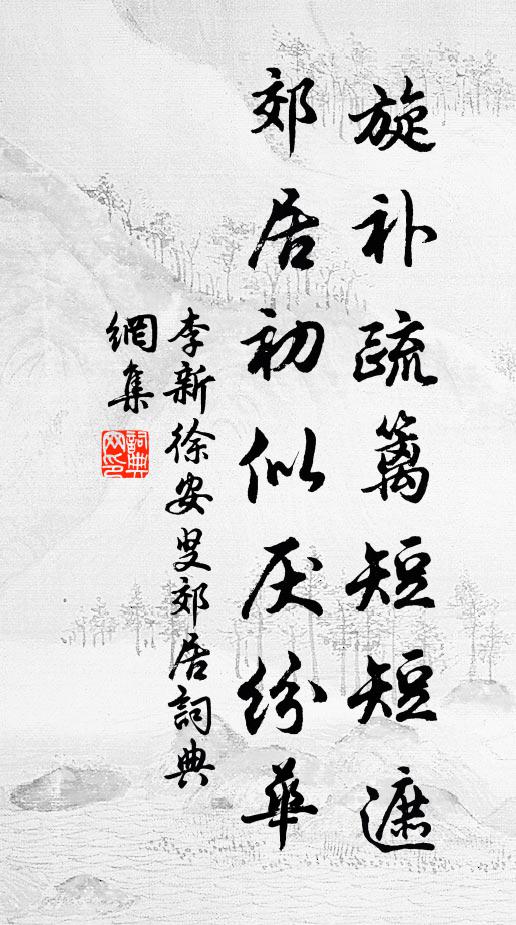 旋补疏篱短短遮
郊居初似厌纷华
李新徐安叟郊居詞典
網集
詞典
网印